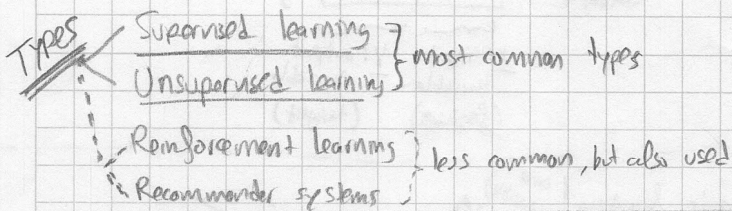 Types
Supervised learning
Unsupervised learning
most common types
Reinforcement learning
Recommender systems
less common, but also used